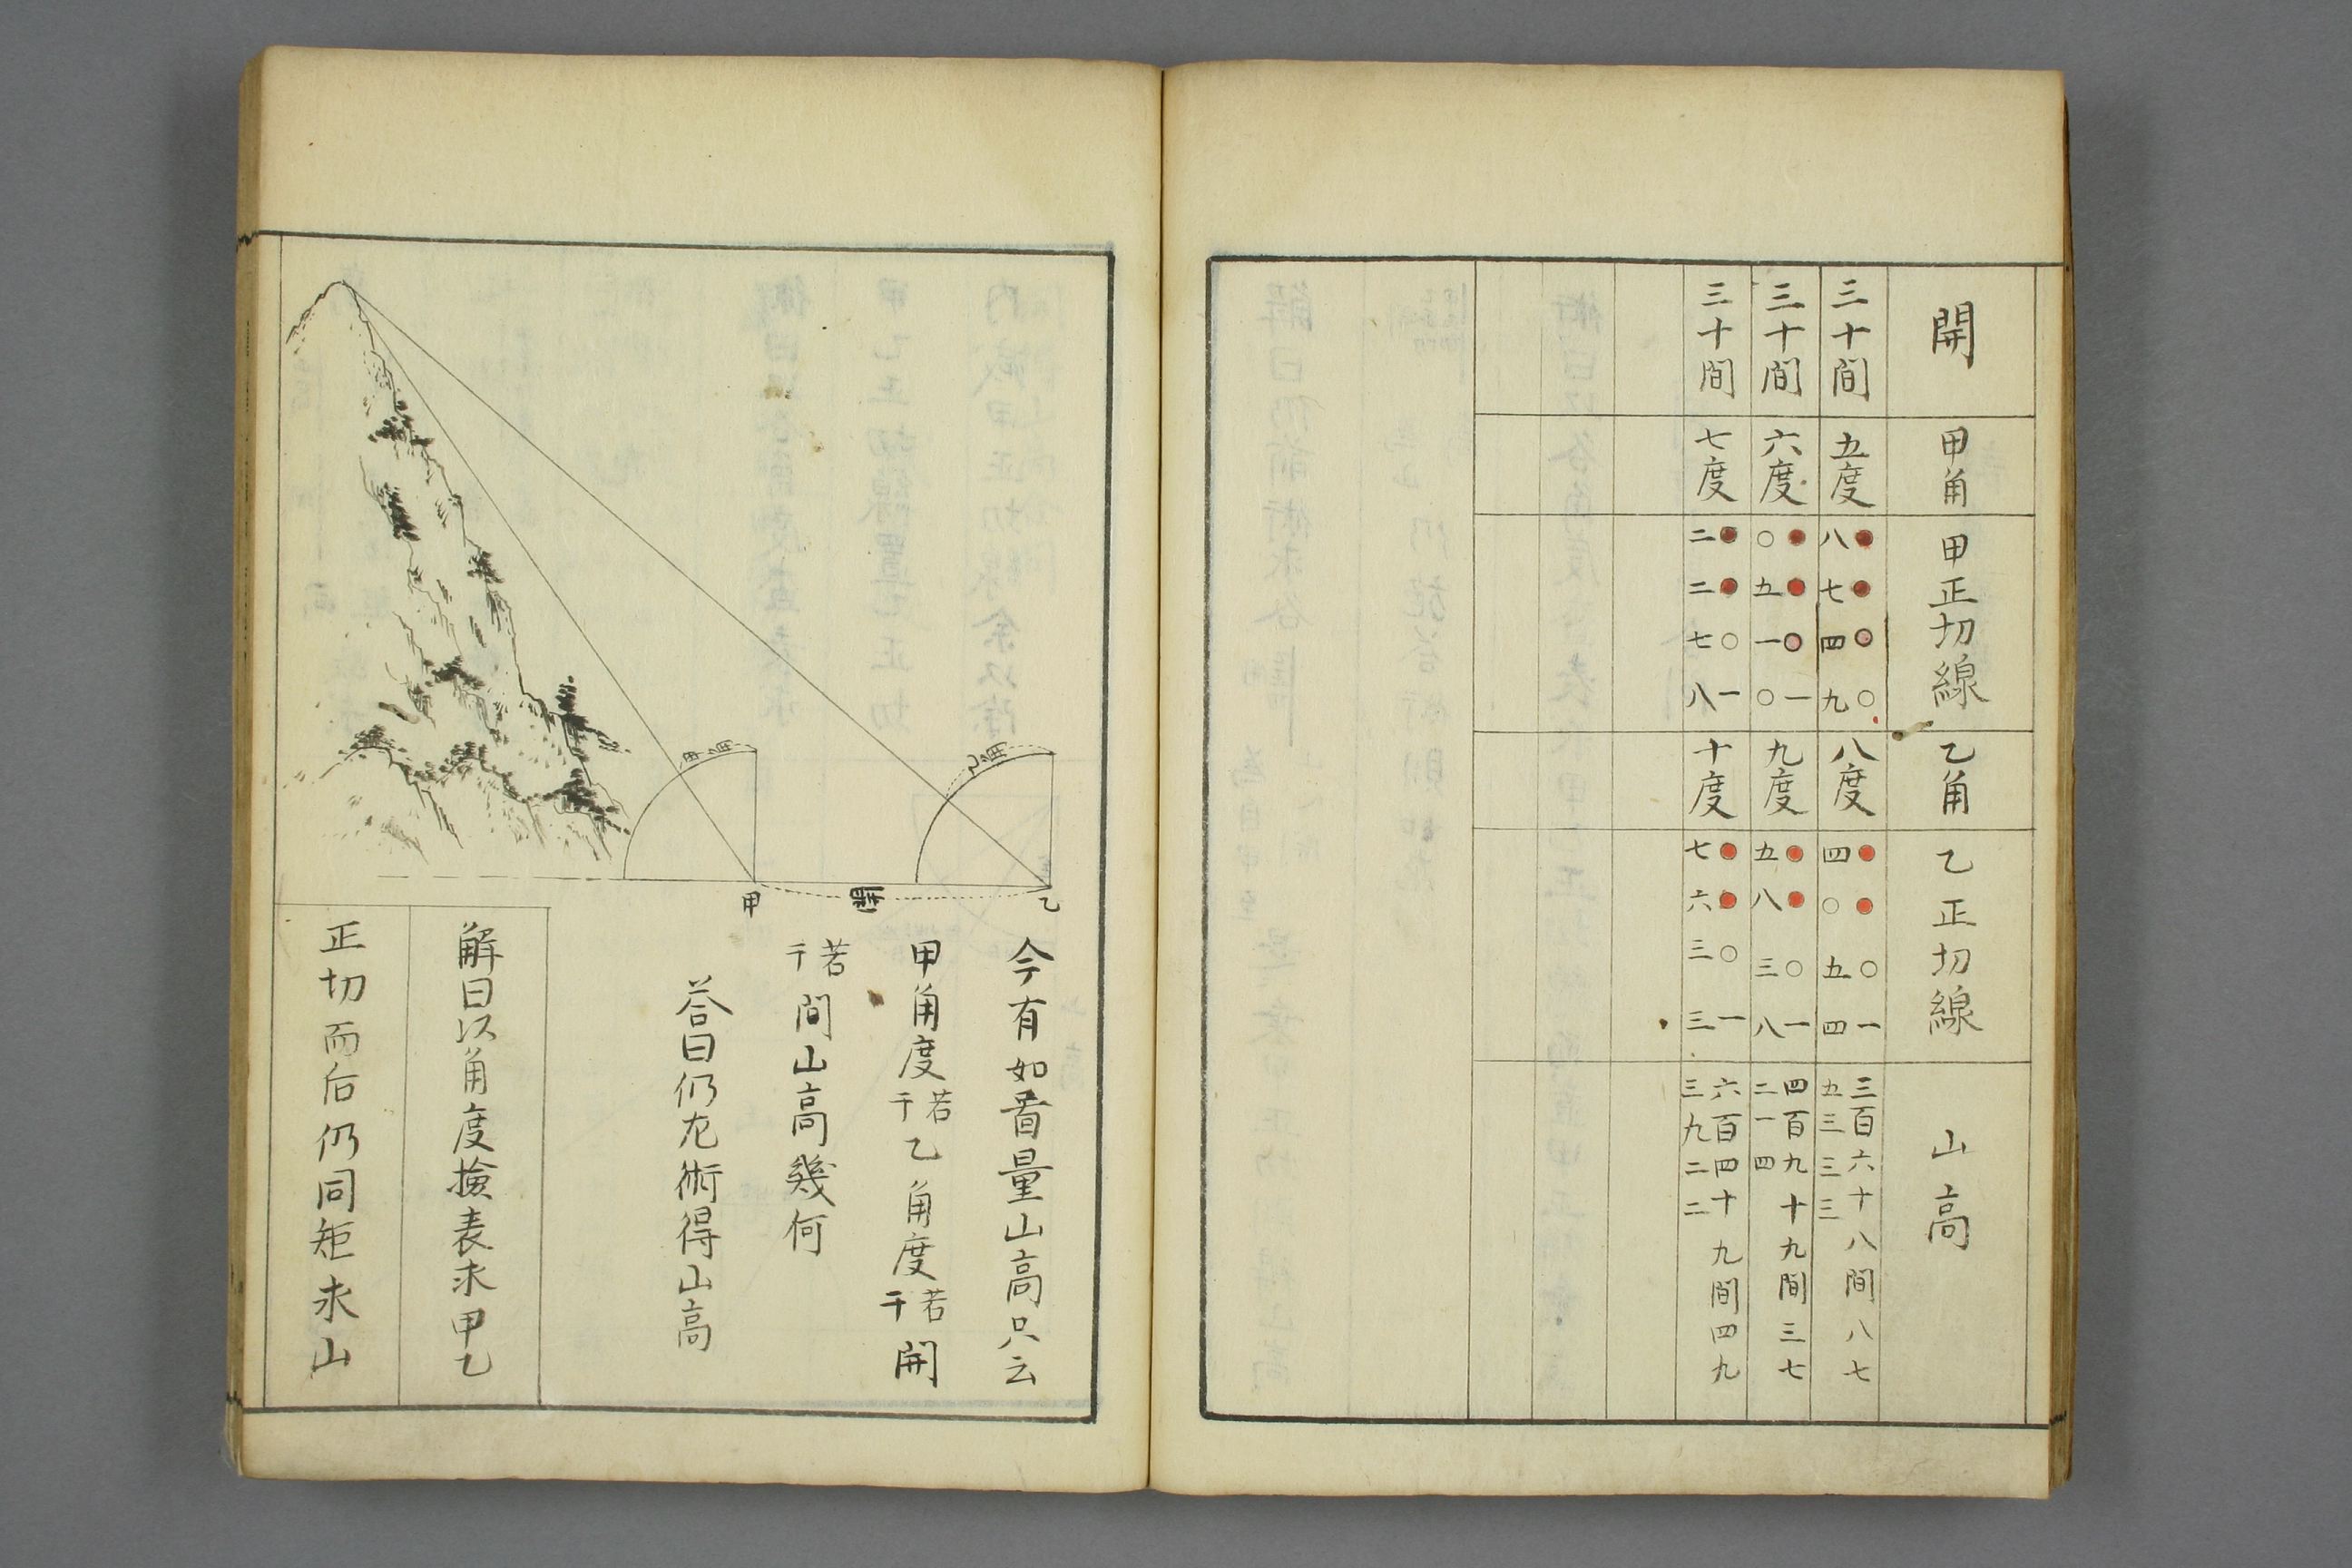 開 甲角 甲正切線 乙角 乙正切線 山高
三十間 五度 ●●○○八七四九 八度 ●●○一四○五四 三百六十八間八七五三三三
三十間 六度 ●●○一○五一○ 九度 ●●○一五八三八 四百九十九間三七二一四
三十間 七度 ●●○一二二七八 十度 ●●○一七六三三 六百四十九間四九三九二二
乙角
甲角
乙
開
甲
今有如啚量山高只云
甲角度若干乙角度若干開
若干間山高幾何
荅曰仍左術得山高
解曰以角度撿表求甲乙
正切而后仍同矩求山